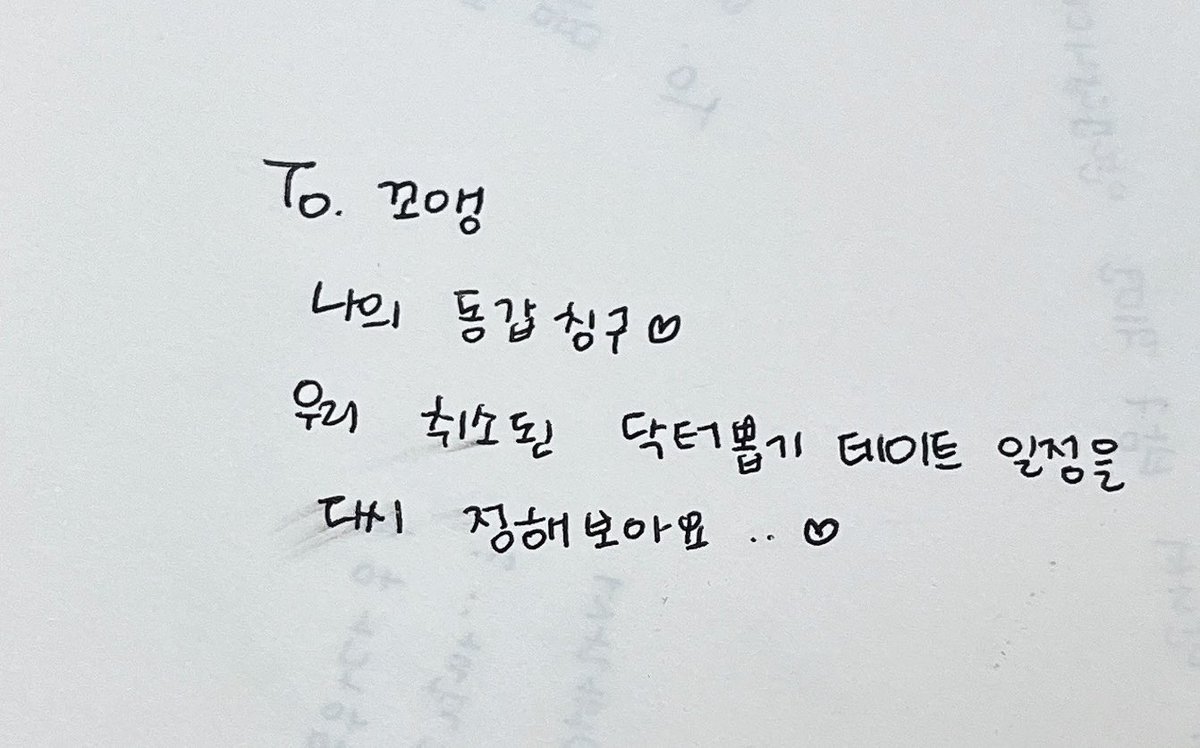 To. 꼬앵
나의 동갑칭구♡
우리 취소된 닥터뽑기 데이트 일정을
다시 정해보아요 .. ♡